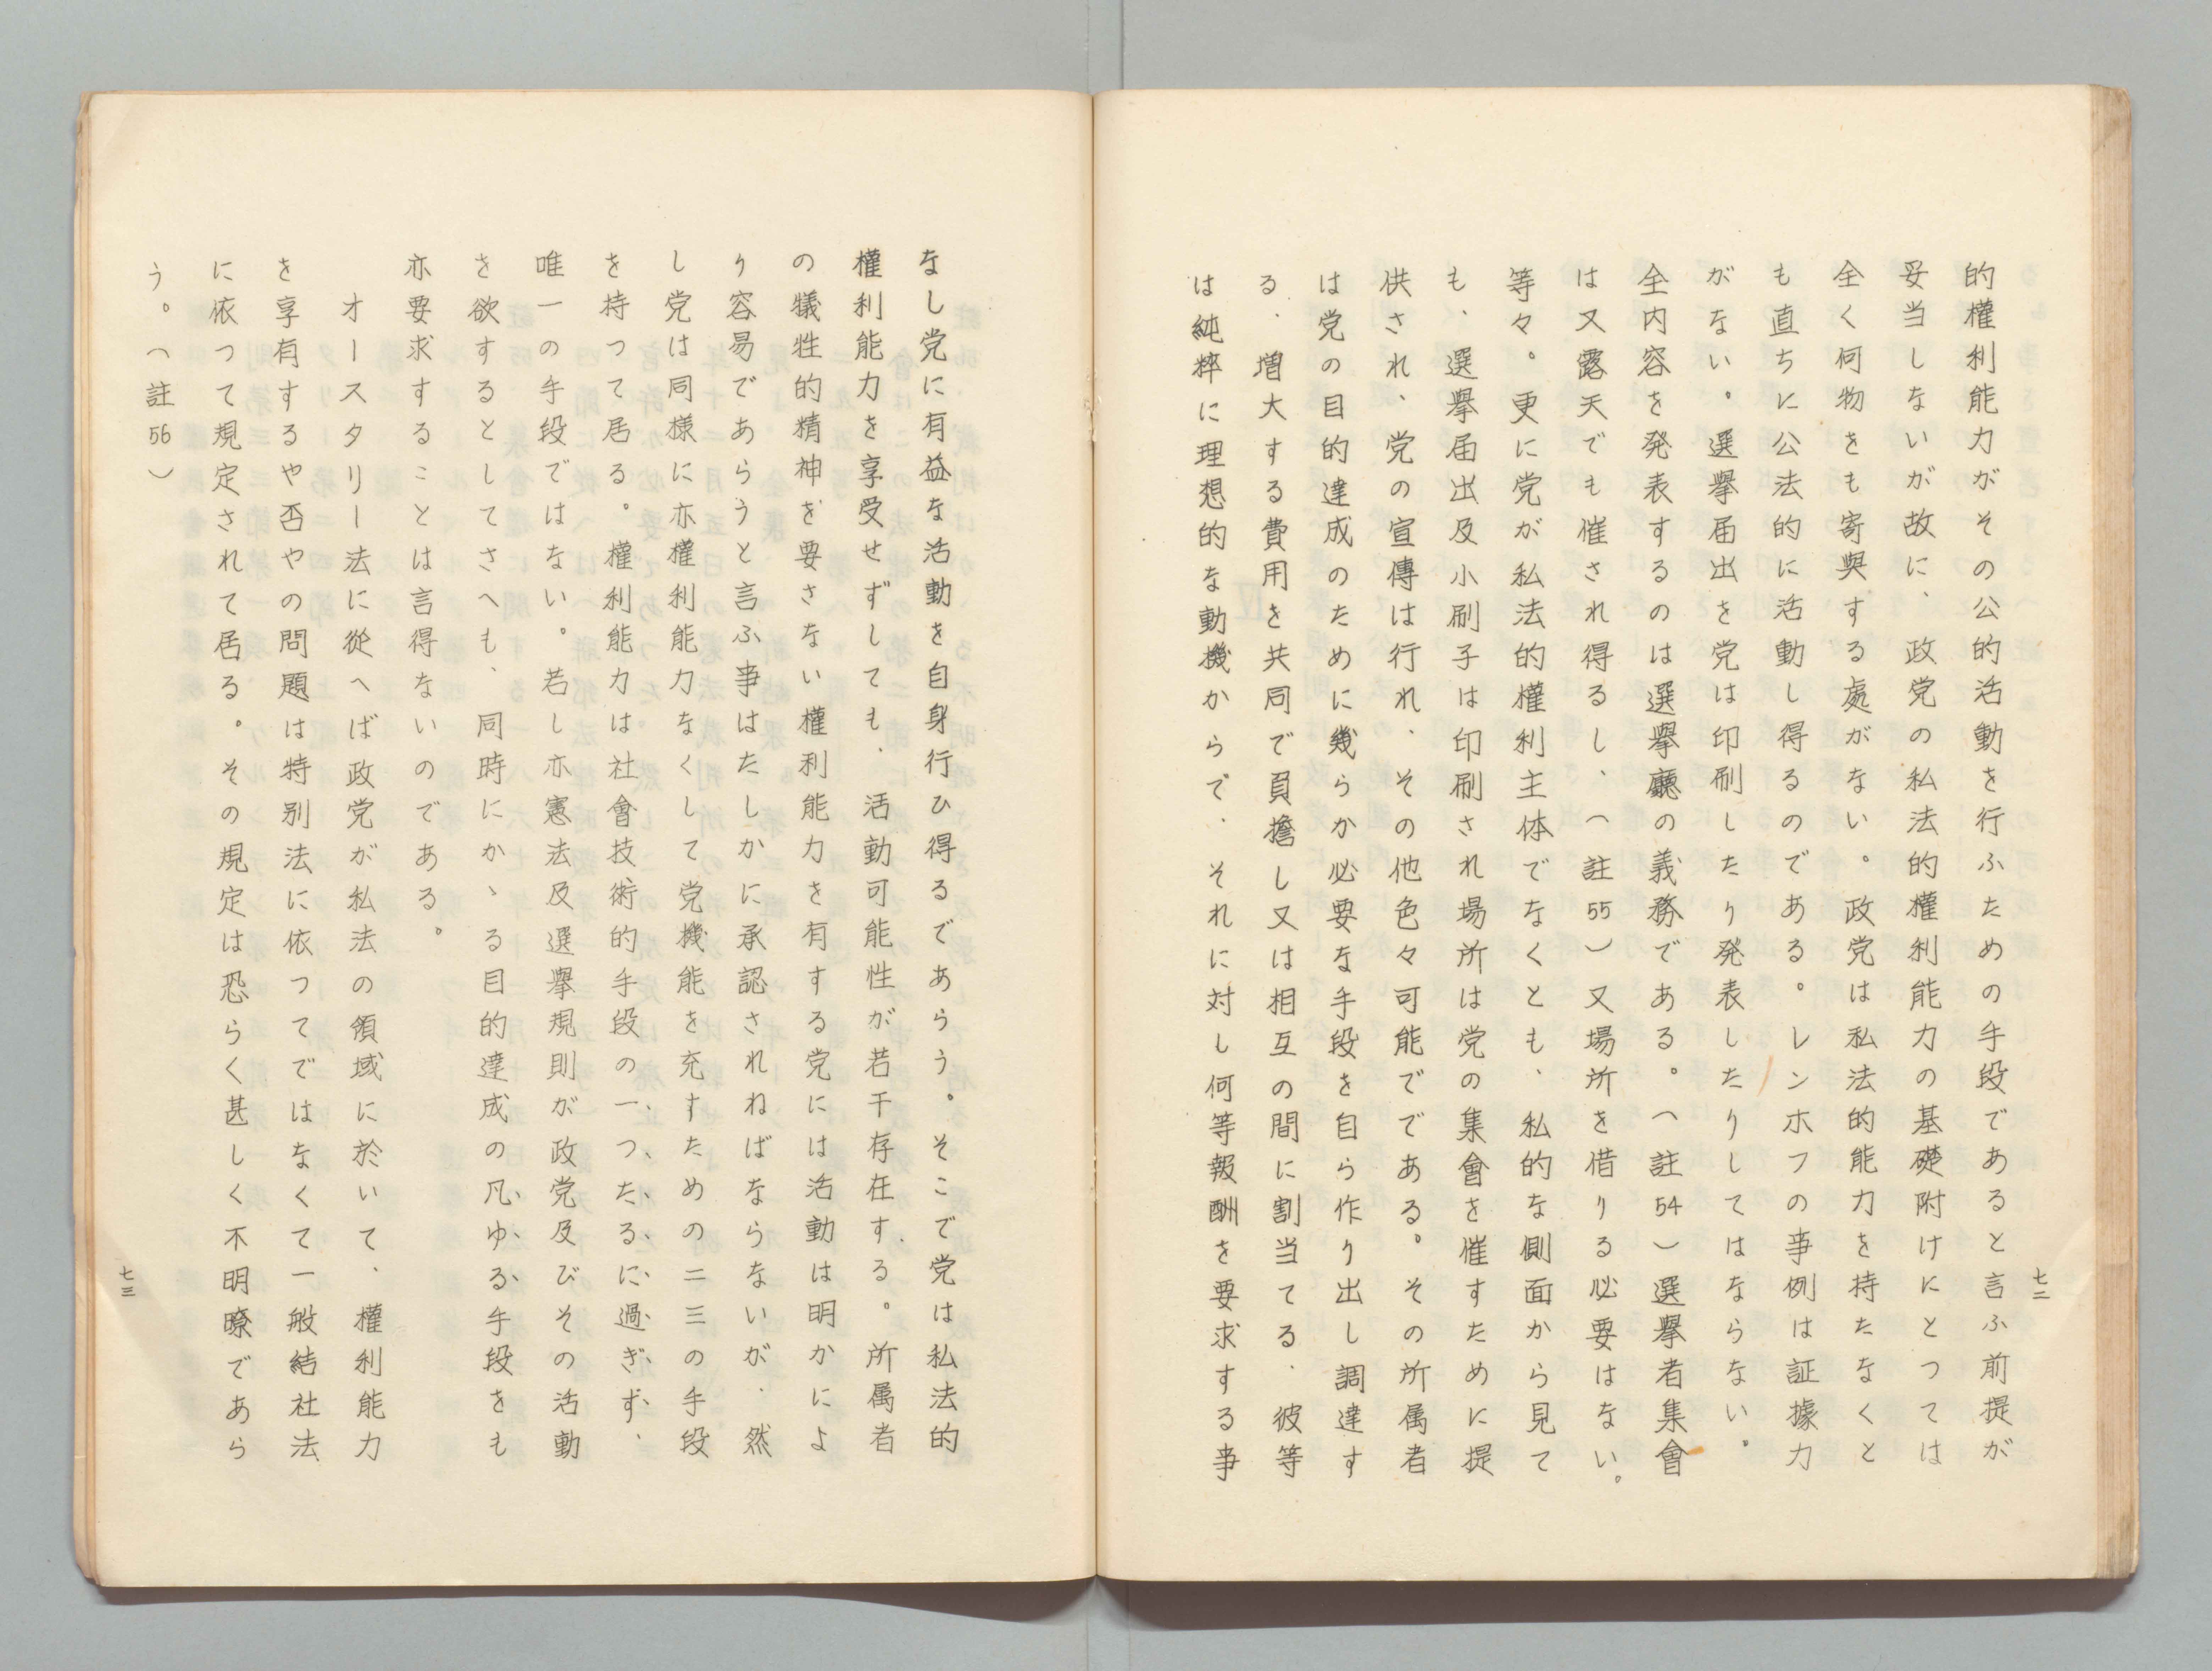 七二
的權利能力がその公的活動を行ふための手段であると言ふ前提が
妥当しないが故に、政党の私法的權利能力の基礎附けにとつては
全く何物をも寄與する處がない。政党は私法的能力を持たなくと
も直ちに公法的に活動し得るのである。レンホフの事例は証據力
がない。選擧届出を党は印刷したり発表したりしてはならない。
全内容を発表するのは選擧廳の義務である。（註54）選擧者集會
は又露天でも催され得るし、（註55）又場所を借りる必要はない。
等々。更に党が私法的權利主体でなくとも、私的な側面から見て
も、選擧届出及小刷子は印刷され場所は党の集會を催すために提
供され、党の宣傳は行れ、その他色々可能でである。その所属者
は党の目的達成のために幾らか必要な手段を自ら作り出し調達す
る、増大する費用を共同で負擔し又は相互の間に割当てる、彼等
は純粹に理想的な動機からで、それに対し何等報酬を要求する事
なし党に有益な活動を自身行ひ得るであらう。そこで党は私法的
權利能力を享受せずしても、活動可能性が若干存在する。所属者
の犠牲的精神を要さない權利能力を有する党には活動は明かによ
り容易であらうと言ふ事はたしかに承認されねばならないが、然
し党は同様に亦權利能力なくして党機能を充すための二三の手段
を持つて居る。權利能力は社會技術的手段の一つたるに過ぎず、
唯一の手段ではない。若し亦憲法及選擧規則が政党及びその活動
を欲するとしてさへも、同時にかゝる目的達成の凡ゆる手段をも
亦要求することは言得ないのである。
オースタリー法に從へば政党が私法の領域に於いて、權利能力
を享有するや否やの問題は特別法に依つてではなくて一般結社法
に依つて規定されて居る。その規定は恐らく甚しく不明瞭であら
う。（註56）
七三